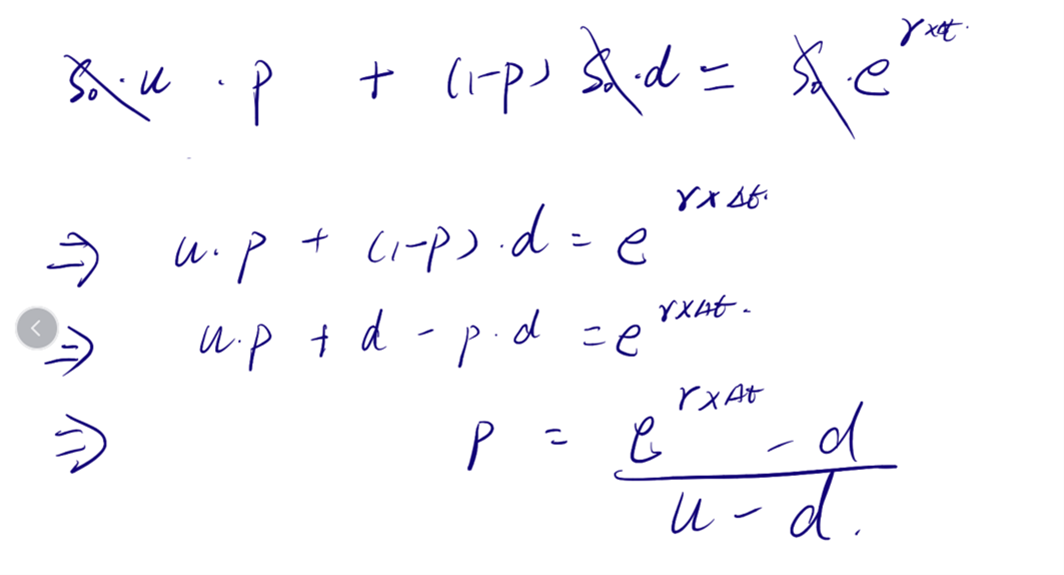 S₀·u · p + (1-p) S₀·d = S₀·e^{r×Δt}.
⇒ u·p + (1-p)·d = e^{r×Δt}.
⇒ u·p + d - p·d = e^{r×Δt}.
⇒ p = \frac{e^{r×Δt} - d}{u - d}.